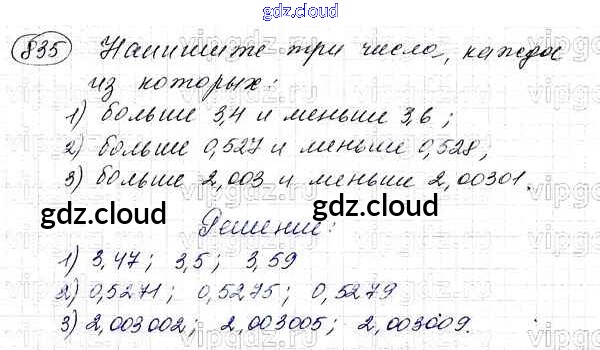 gdz.cloud
835 Напишите три числа, каждое
из которых:
1) больше 3,4 и меньше 3,6;
2) больше 0,527 и меньше 0,528;
3) больше 2,003 и меньше 2,00301.
gdz.cloud gdz.cloud
Решение:
1) 3,47; 3,5; 3,59
2) 0,5271; 0,5275; 0,5279
3) 2,003002; 2,003005; 2,003009.